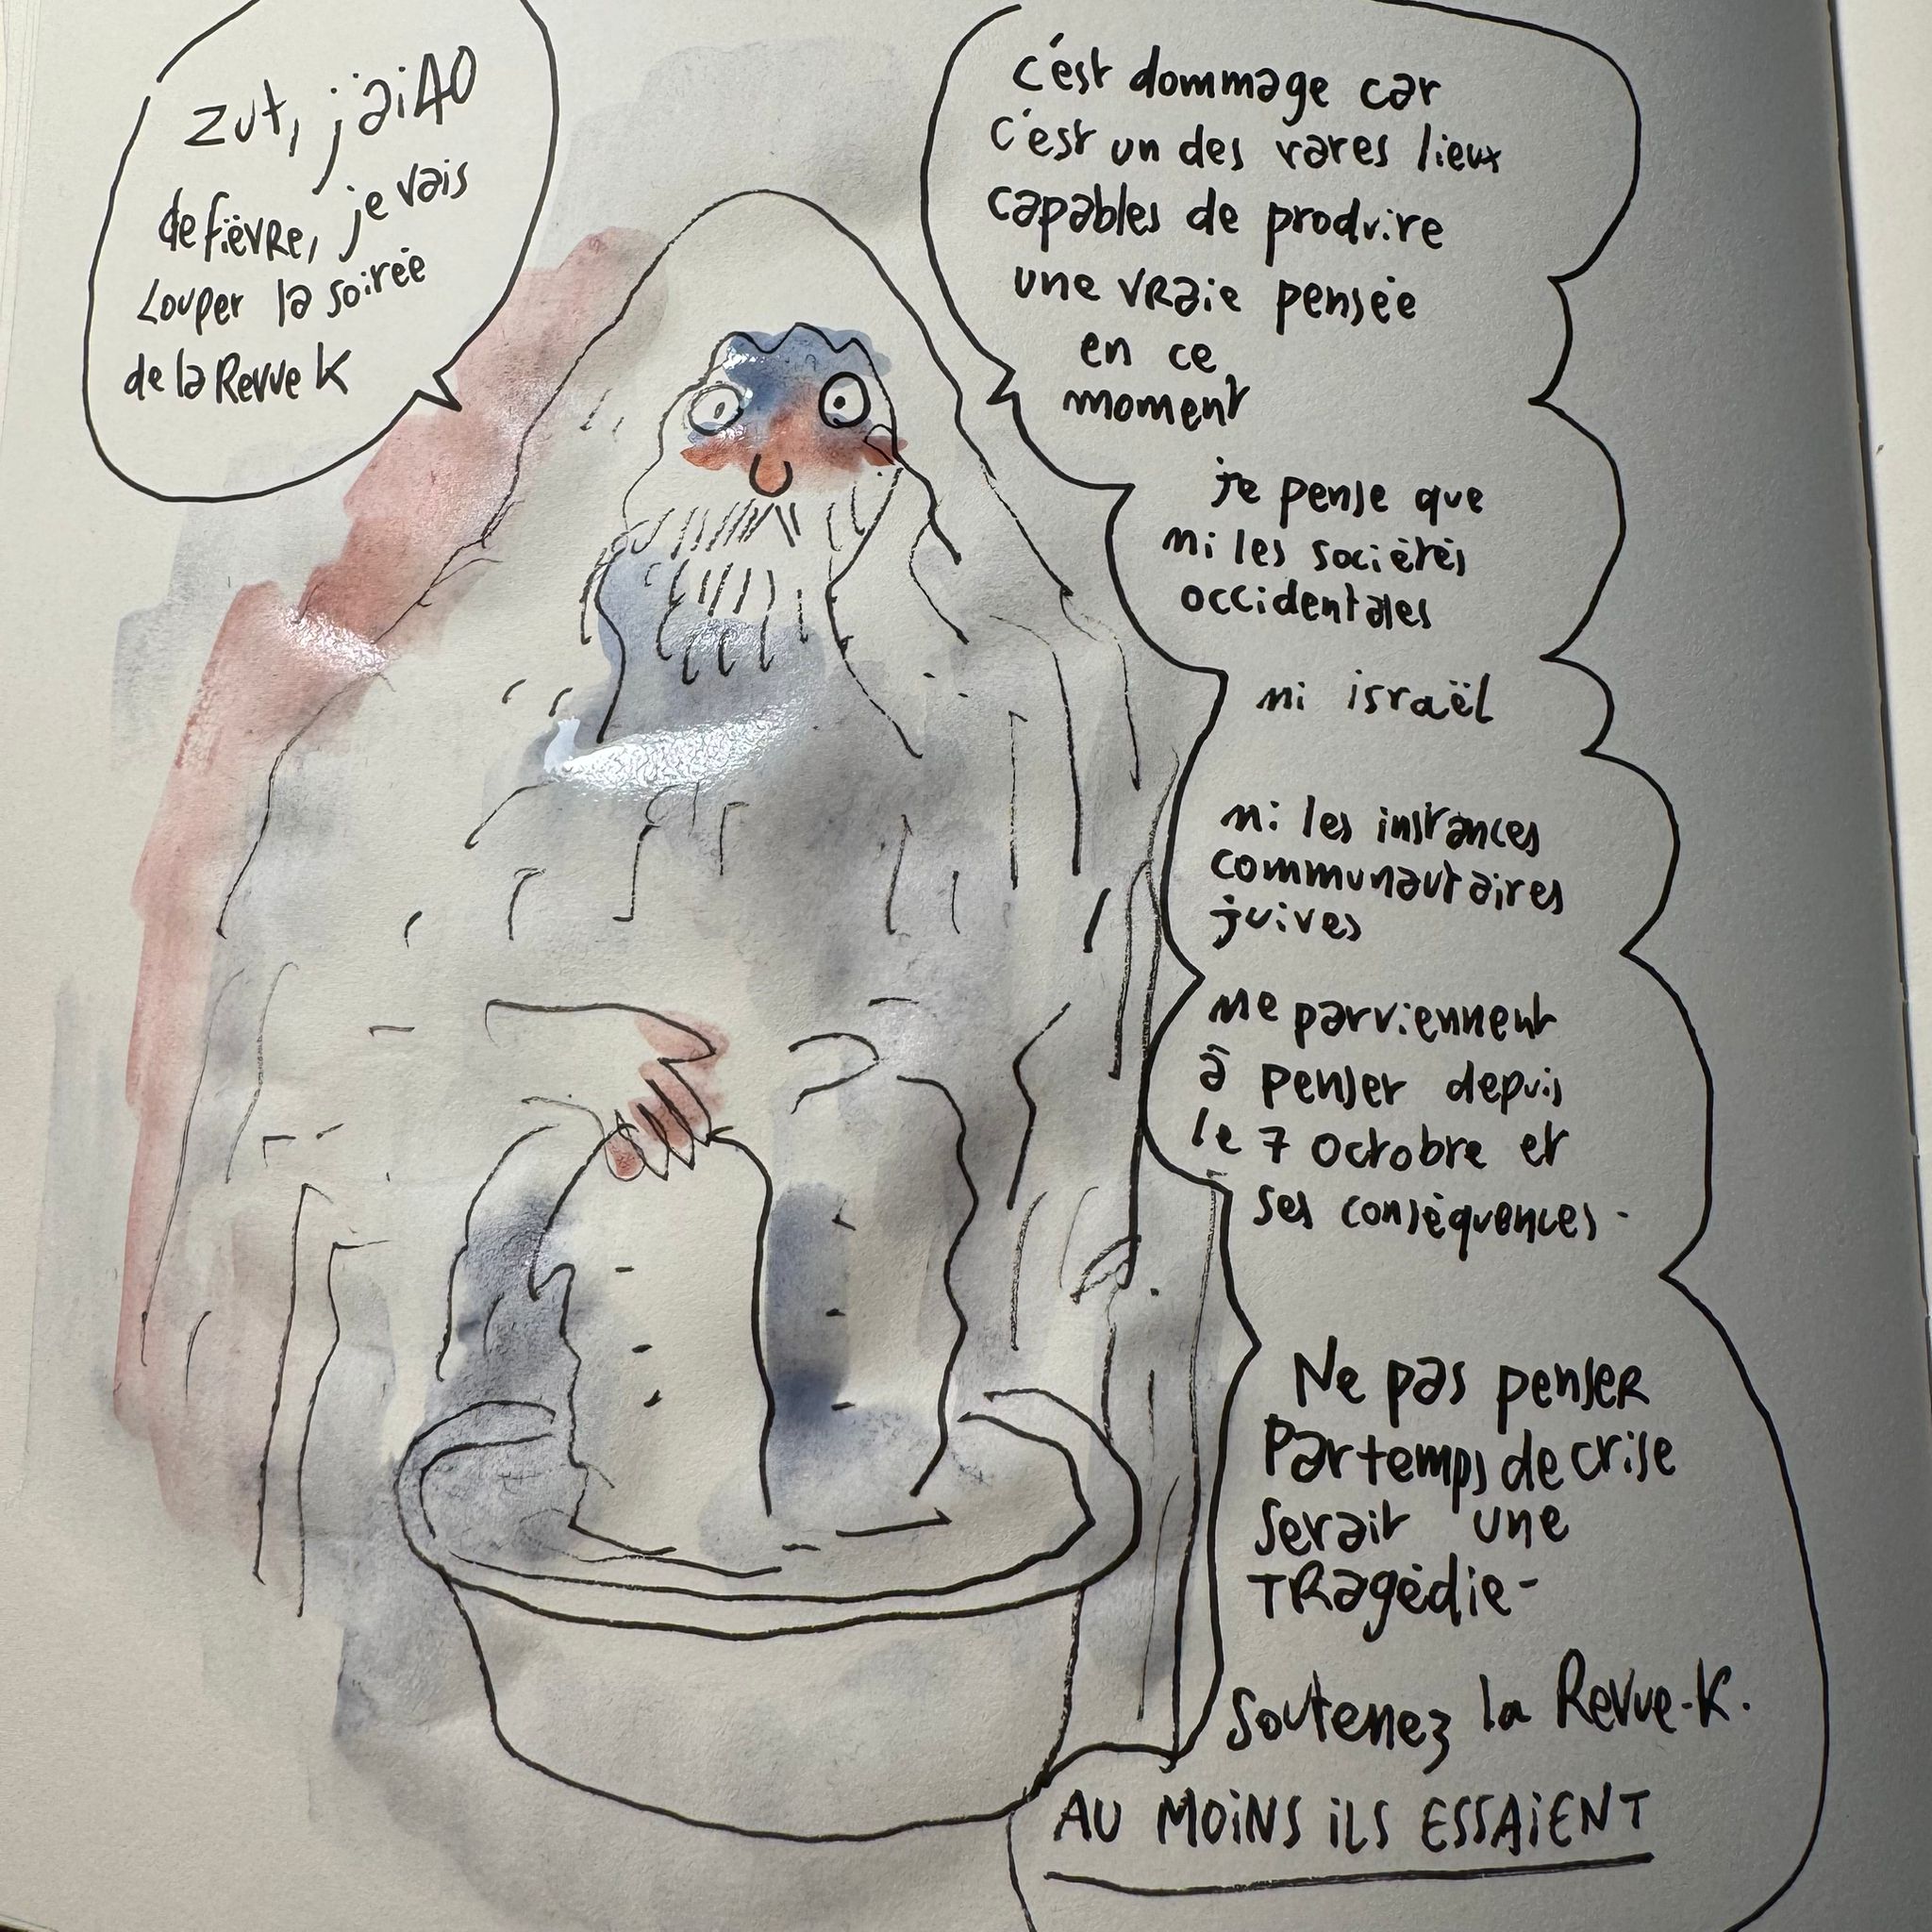 zut, j'ai 40
de fièvre, je vais
Louper la soirée
de la Revue K
c'est dommage car
c'est un des rares lieux
capables de produire
une vraie pensée
en ce
moment
je pense que
ni les sociétés
occidentales
ni israël
ni les instances
communautaires
juives
ne parviennent
à penser depuis
le 7 octobre et
ses conséquences -
Ne pas penser
Par temps de crise
serait une
TRagédie -
Soutenez la Revue-K.
AU MOiNS iLS ESSAiENT